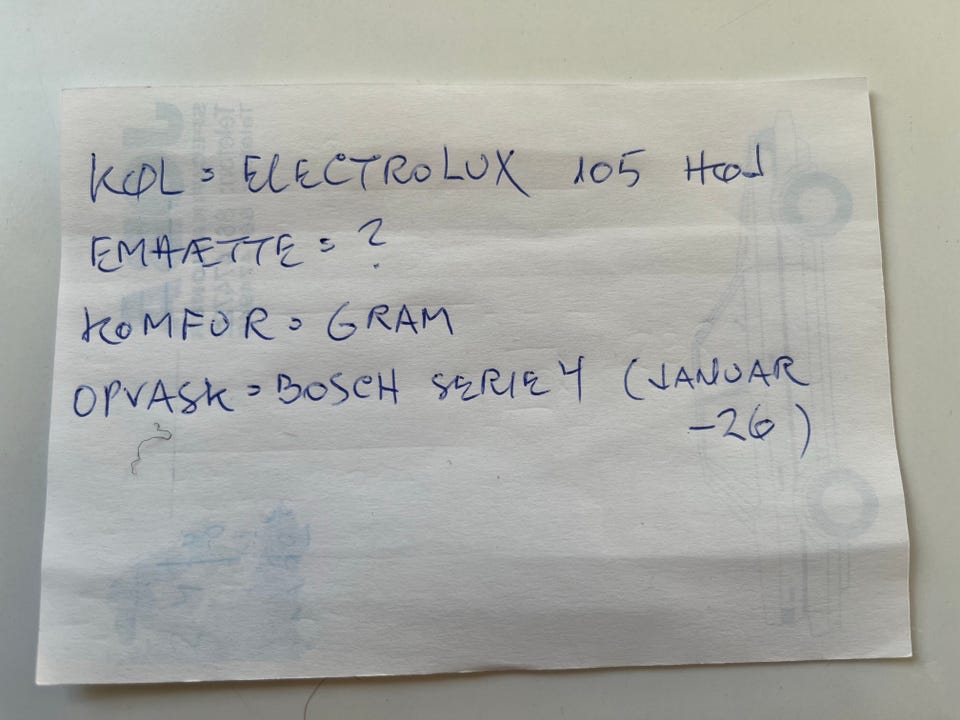 KØL = ELECTROLUX 105 HØJ
EMHÆTTE = ?
KOMFUR = GRAM
OPVASK = BOSCH SERIE 4 (JANUAR
-26)